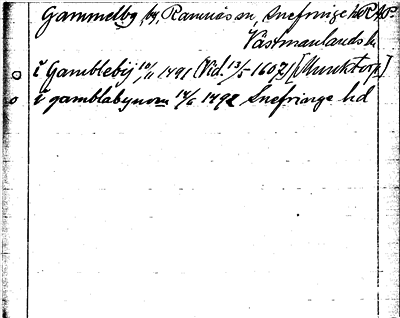 Gammelby, by, Ramnäs sn, Snefringe hd
Västmanlands l.
i Gamblebij 10/11 1491 (Vid. 13/5 1607) [Muncktorp]
i gamblabynom 14/6 1492 Snefringe hd